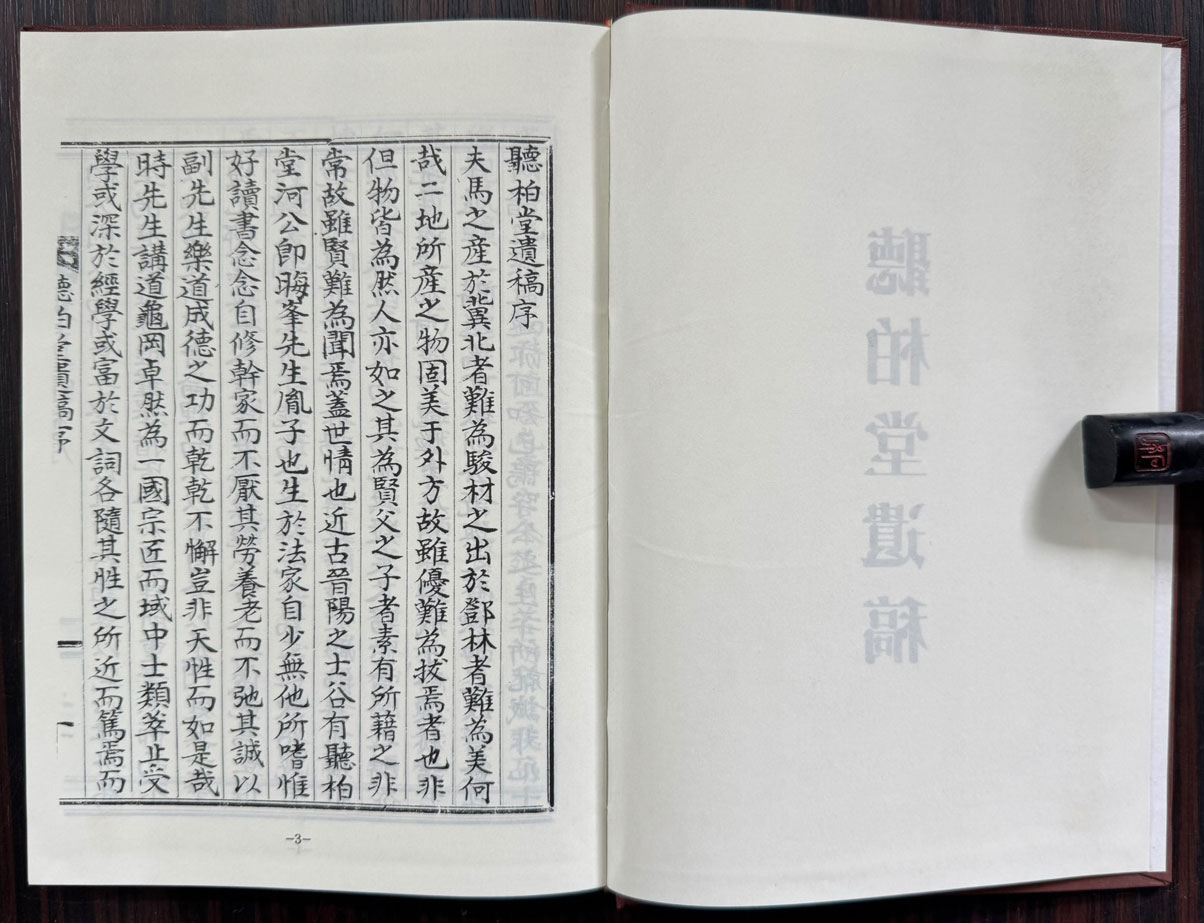 聽柏堂遺稿
聽柏堂遺稿序
夫馬之産於冀北者難為駿材之出於鄧林者難為美何
哉二地所産之物固美于外方故雖優難為拔焉者也非
但物皆為然人亦如之其為賢父之子者素有所藉之非
常故雖賢難為聞焉蓋世情也近古晉陽之士谷有聽柏
堂河公卽晦峯先生胤子也生於法家自少無他所嗜惟
好讀書念念自修幹家而不厭其勞養老而不弛其誠以
副先生樂道成德之功而乾乾不懈豈非天性而如是哉
時先生講道龜岡卓然為一國宗匠而域中士類萃止受
學或深於經學或富於文詞各隨其性之所近而篤焉而
聽柏堂遺稿序
一
-3-